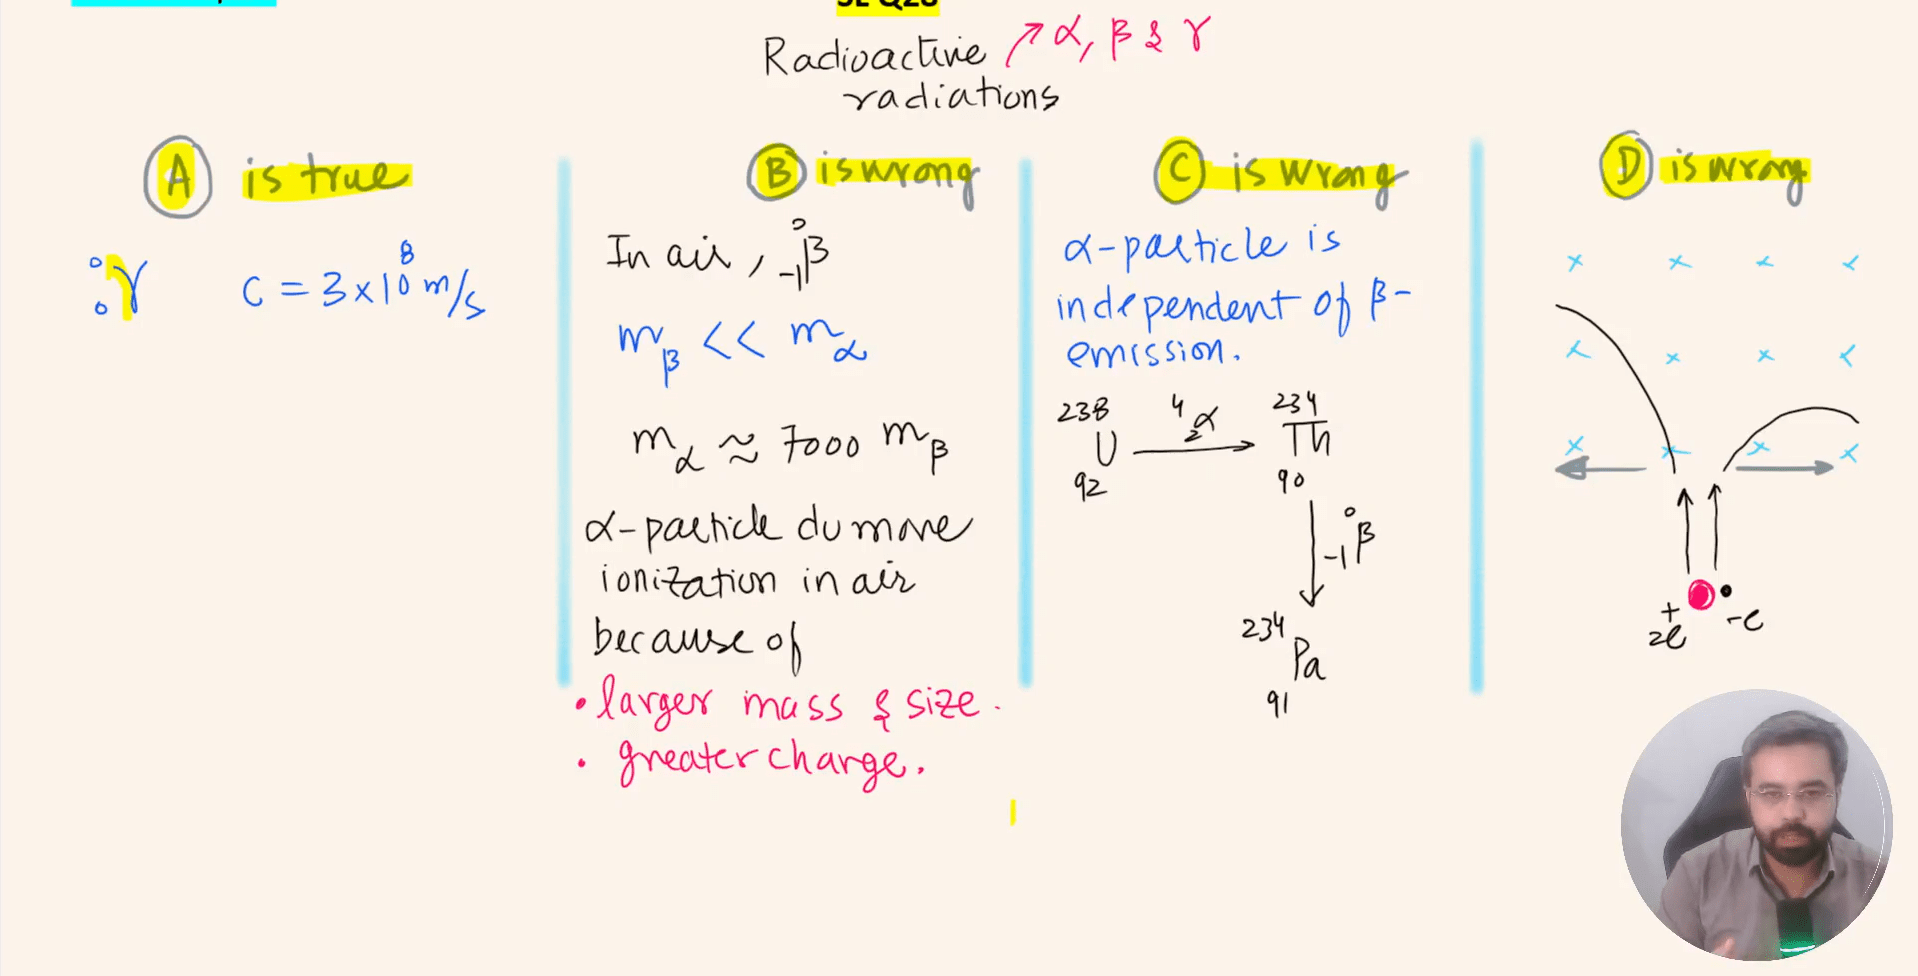 Radioactive ↗ α, β & γ
radiations
A is true
⁰₀γ C = 3×10⁸ m/s
B is wrong
In air, ⁰₋₁β
mβ << mα
mα ≈ 7000 mβ
α-particle du more
ionization in air
because of
• larger mass & size.
• greater charge.
C is wrong
α-particle is
independent of β-
emission.
²³⁸₉₂U ⁴₂α → ²³⁴₉₀Th
↓ ⁰₋₁β
²³⁴₉₁Pa
D is wrong
× × × ×
× × × ×
× × × ×
+2e -e